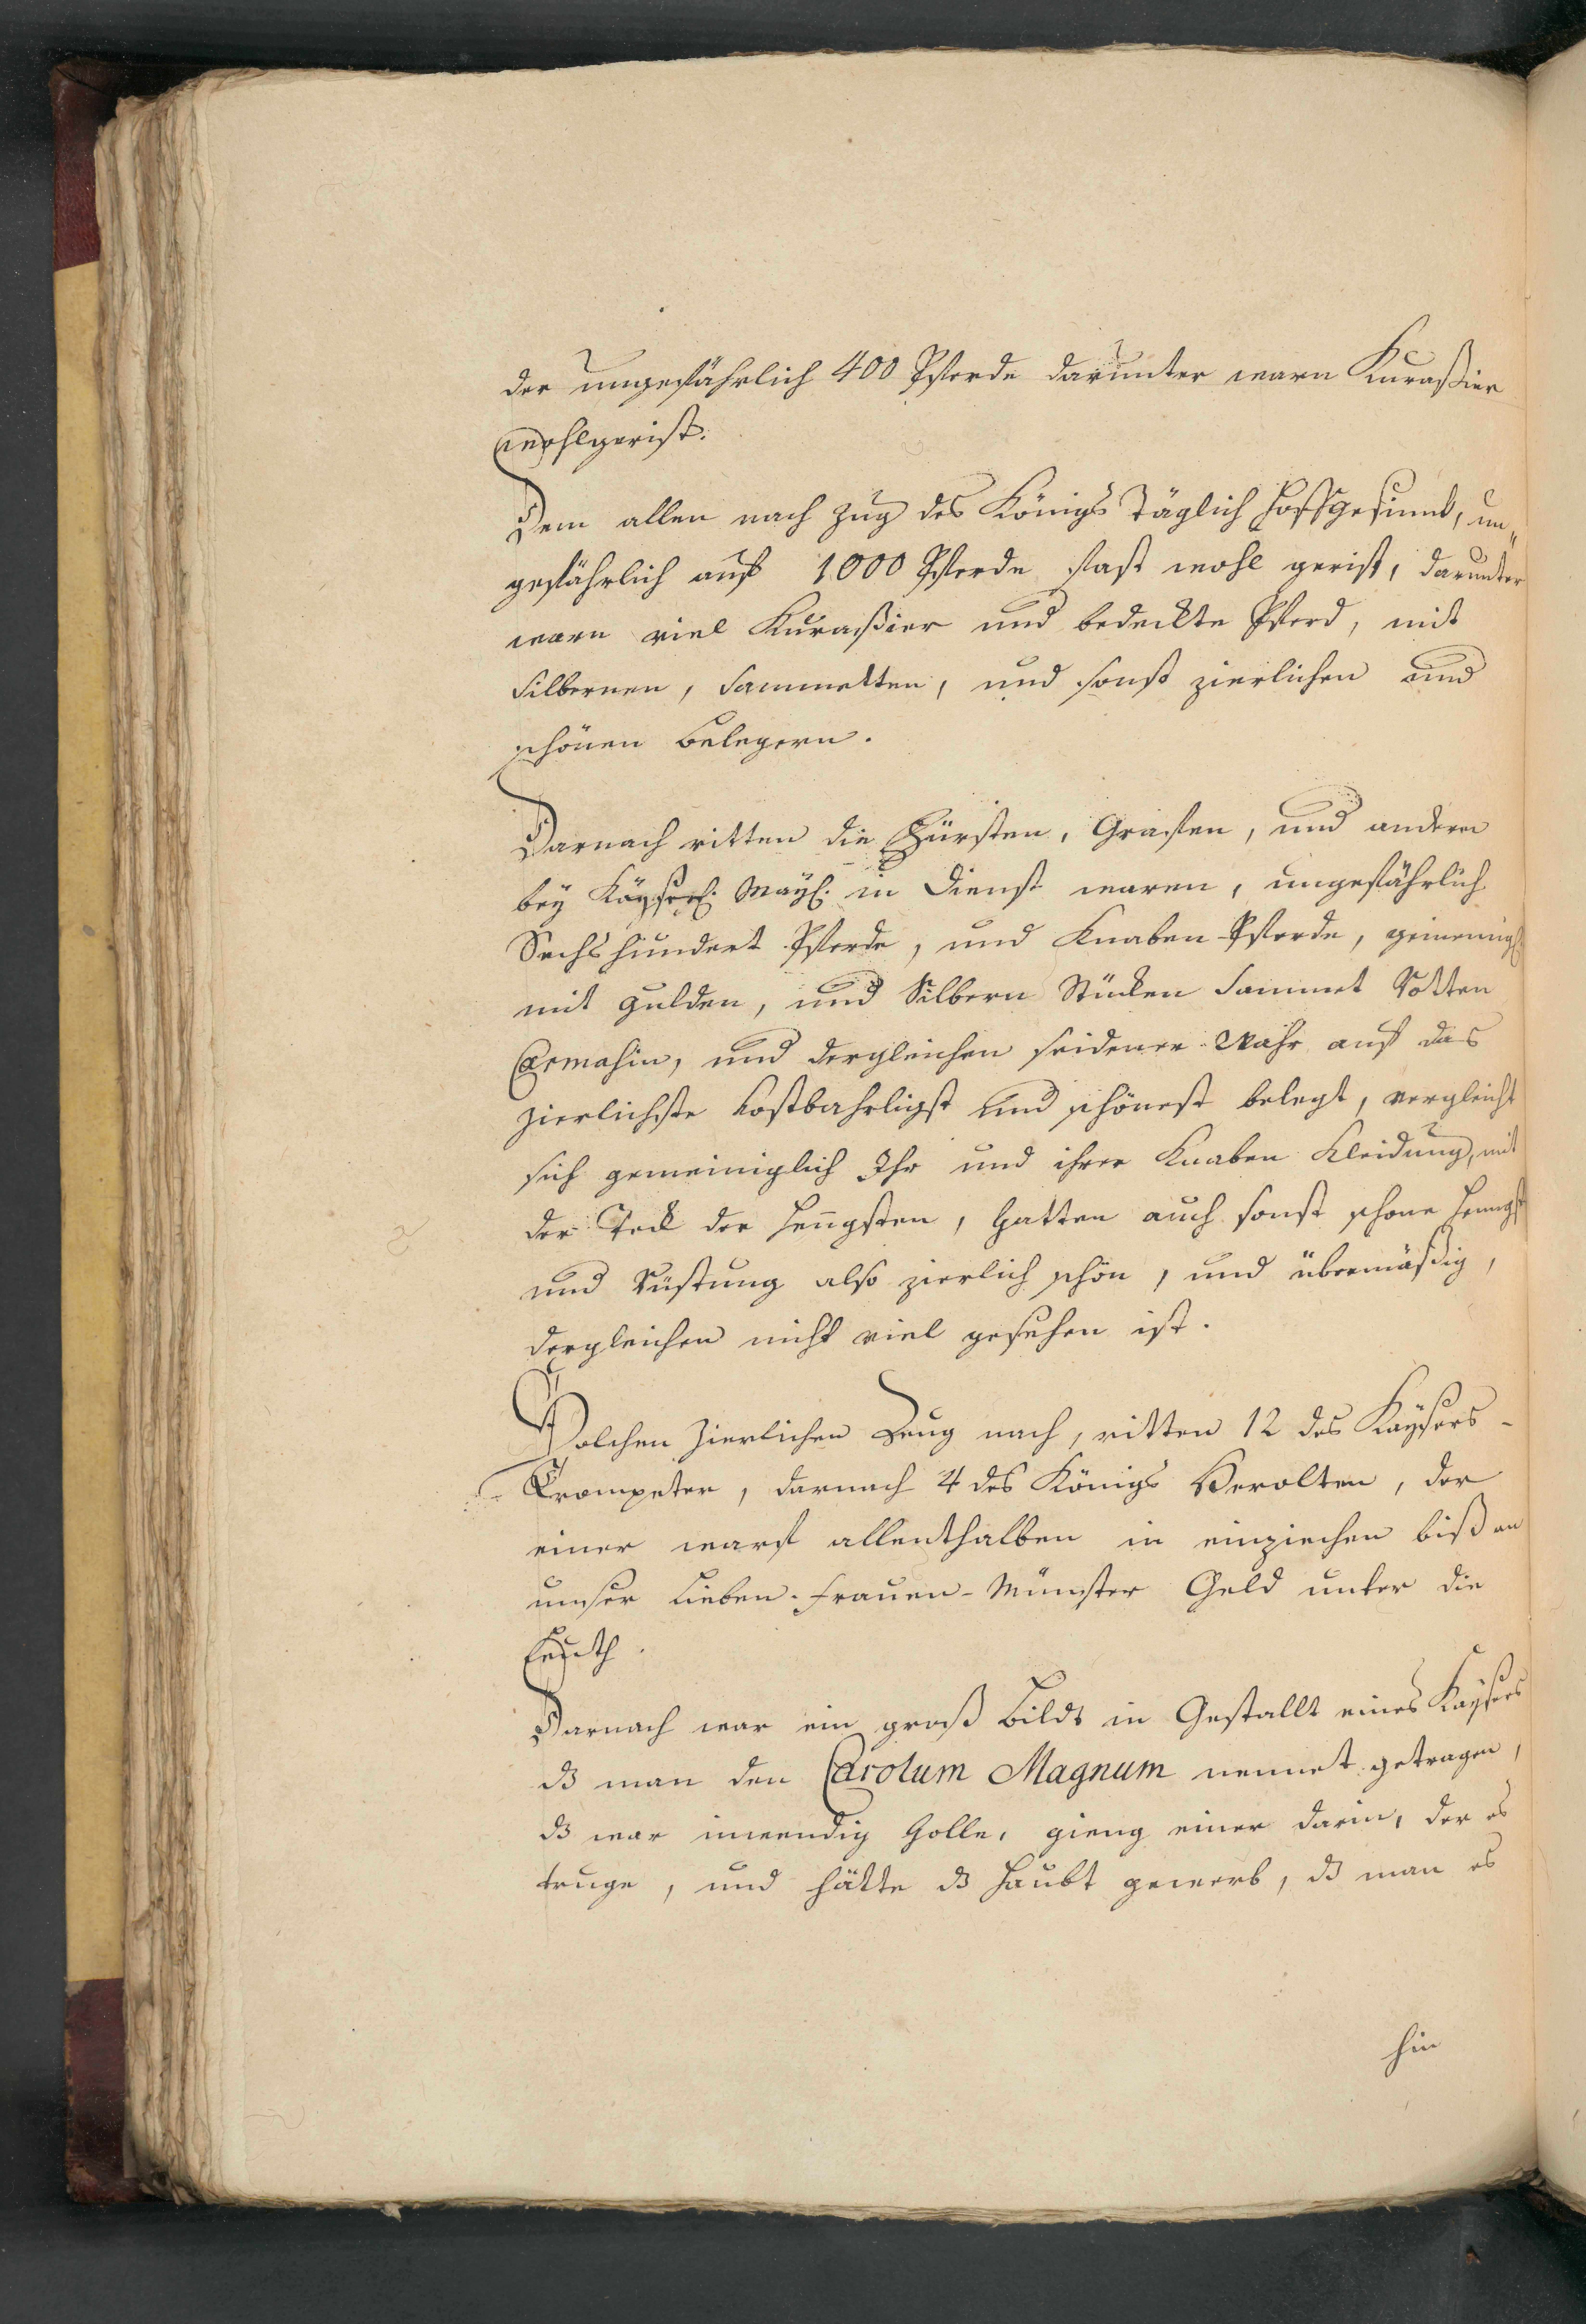 der ungefährlich 400 Pferde darunter warn Kuraßier
wohlgerist.
Dem allen nach zug des Königs Täglich Hoffgesind, un„
gefährlich auf 1000 Pferde fast wohl gerist, darunter
warn viel Kuraßier und bedeckte Pferd, mit
silbernen, Sammetten, und sonst zierlichen und
schönen belegern.
Darnach ritten die Fürsten, Grafen, und andern
bey Kayserl. May. in Dienst waren, ungefährlich
Sechshundert Pferde, und Knaben-Pferde, gemeinigl.
mit gulden, und Silbern Stücken Sammet Rotten
Carmasin, und dergleichen seidener Wahr auf das
zierlichste kostbahrligst und schönest belegt, vergleicht
sich gemeiniglich Ihr und ihrer Knaben Kleidung, mit
der Teck der Hengsten, hatten auch sonst schone Hengst
und Rüstung also zierlich schön, und übermäßig,
dergleichen nicht viel gesehen ist.
Solchen zierlichen Zeug nach, ritten 12 des Kaysers-
Trompeter, darnach 4 des Königs Herolten, der
einer warf allenthalben in einziechen biß an
unser Lieben-Frauen-Münster Geld unter die
Leuth.
Darnach war ein groß bildt in Gestallt eines Kaysers
dz man den Carolum Magnum nennet getragen,
dz war inwendig holle, gieng einer darin, der es
truge, und hätte dz Haubt gewerb, dz man es
hin